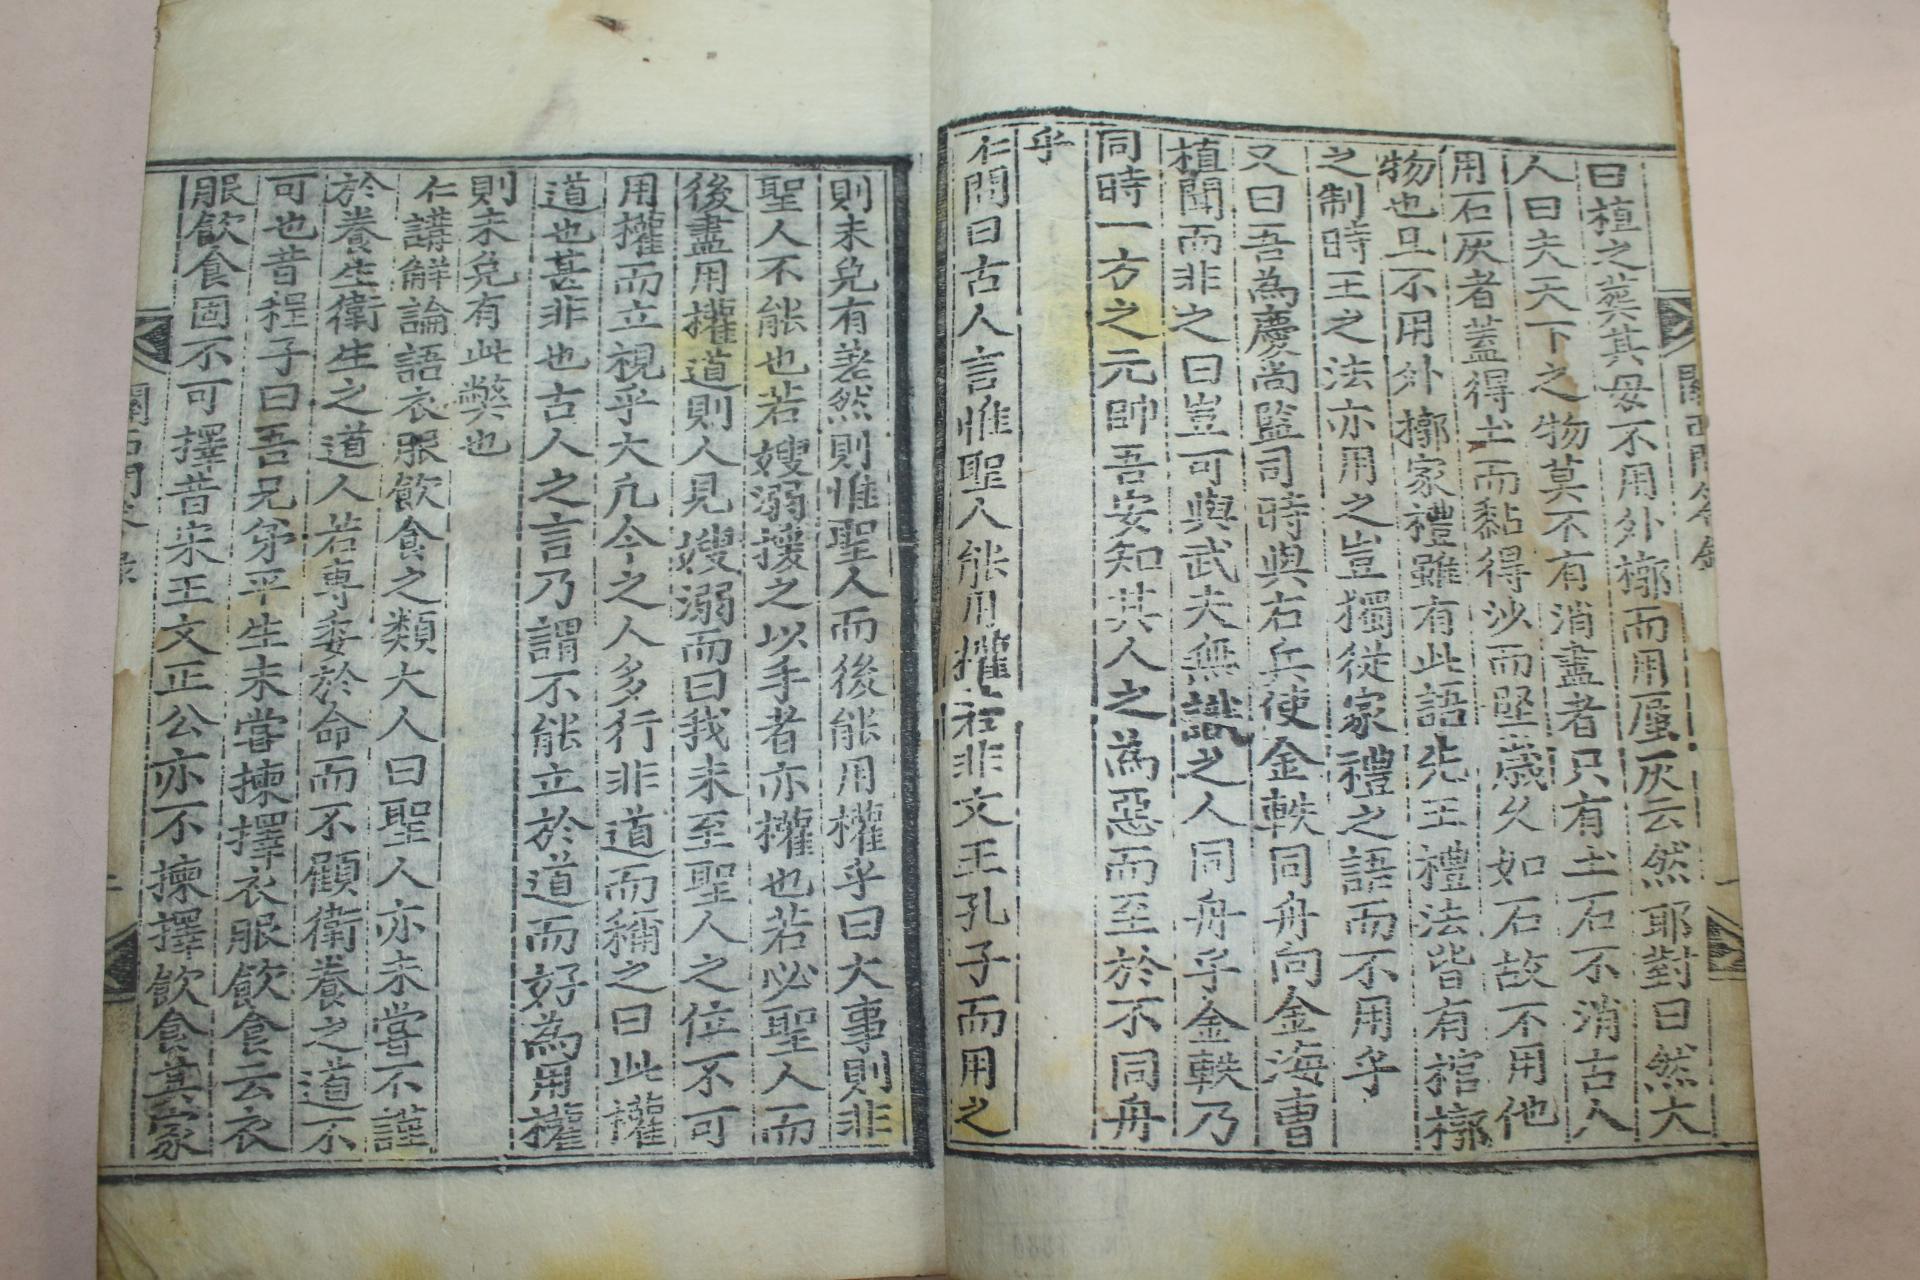 曰植之葬其母不用外槨而用蜃灰云然耶對曰然大
人曰夫天下之物莫不有消盡者只有土石不消古人
用石灰者蓋得土而黏得沙而堅歲久如石故不用他
物也且不用外槨家禮雖有此語先王禮法皆有棺槨
之制時王之法亦用之豈獨從家禮之語而不用乎
又曰吾為慶尚監司時與右兵使金軼同舟向金海曺
植聞而非之曰豈可與武夫無識之人同舟乎金軼乃
同時一方之元帥吾安知其人之為惡而至於不同舟
乎
仁問曰古人言惟聖人能用權非文王孔子而用之
關西問答錄
一
則未免有差然則惟聖人而後能用權乎曰大事則非
聖人不能也若嫂溺援之以手者亦權也若必聖人而
後盡用權道則人見嫂溺而曰我未至聖人之位不可
用權而立視乎大凡今之人多行非道而稱之曰此權
道也甚非也古人之言乃謂不能立於道而好為用權
則未免有此弊也
仁講解論語衣服飲食之類大人曰聖人亦未嘗不謹
於養生衛生之道人若專委於命而不顧衛養之道不
可也昔程子曰吾兄弟平生未嘗揀擇衣服飲食云衣
服飲食固不可擇昔宋王文正公亦不揀擇飲食其家
關西問答錄
二